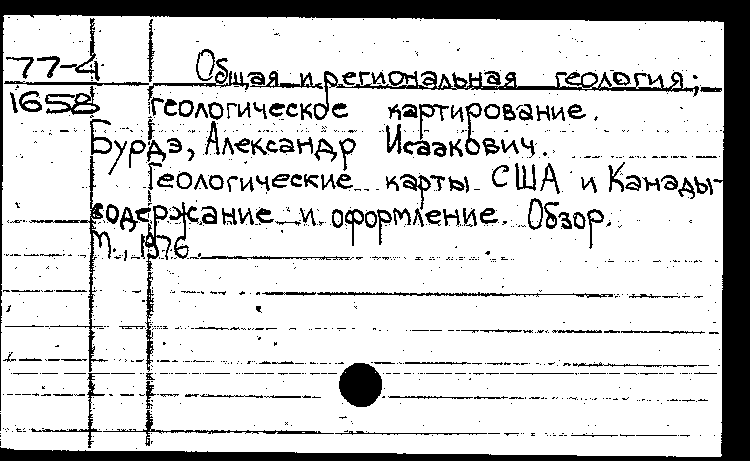 77-4 Общая и региональная геология;
1658 геологическое картирование.
Бурдэ, Александр Исаакович.
Геологические карты США и Канады-
содержание и оформление. Обзор.
М., 1976.